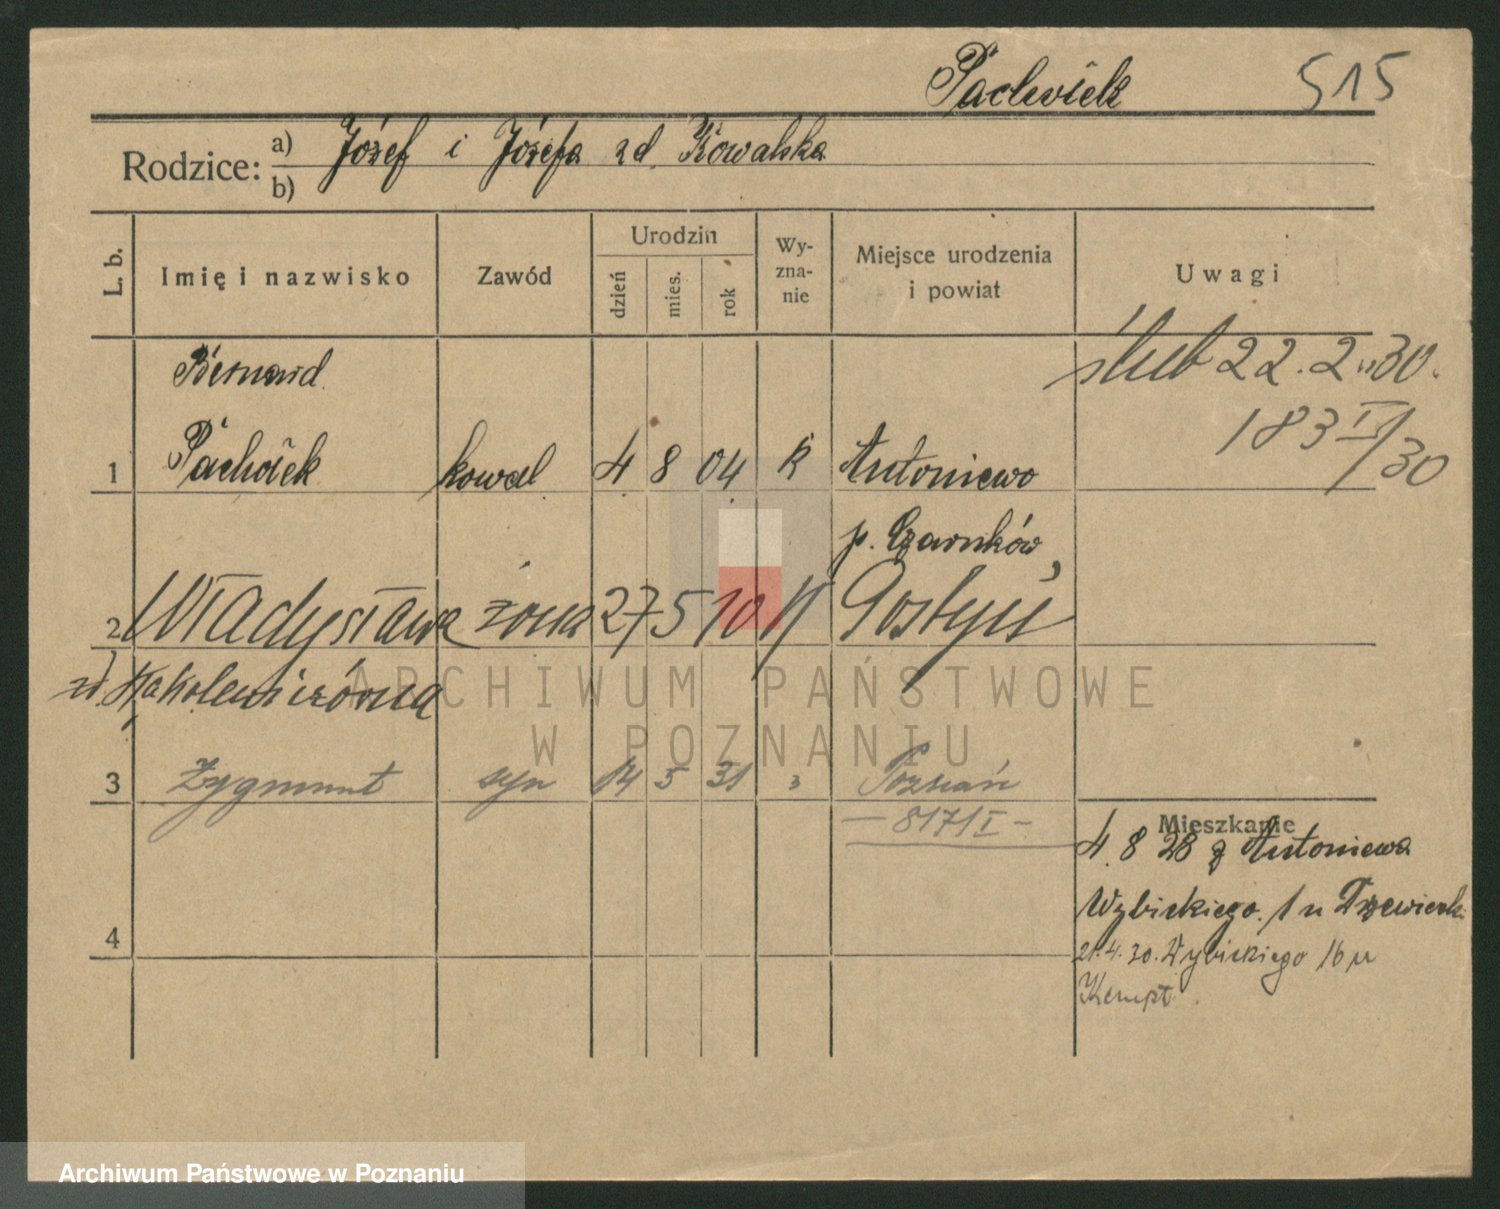 Pacholek 515
Rodzice: a) Józef i Józefa zd. Kowalska
b)
L. b. Imię i nazwisko Zawód Urodzin dzień mies. rok Wy-zna-nie Miejsce urodzenia i powiat Uwagi
ślub 22.2.30.
183 II/30
Bernard
1 kowal 4 8 04 k Antoniewo
p. Czarnków,
2 Władysława żona 27 5 10 Gostyń
zd.
3 Zygmunt syn 14 5 31 " Poznań
— 8171 I —
Mieszkanie
4 8 28 z Antoniewa
Wybickiego 1 u
4
21.4.30. Wybickiego 16 u
Kempt.
ARCHIWUM PAŃSTWOWE
W POZNANIU
Archiwum Państwowe w Poznaniu